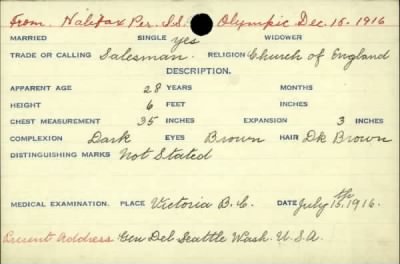 From. Halifax Per. S.S. Olympic Dec. 15. 1916
MARRIED SINGLE yes WIDOWER
TRADE OR CALLING Salesman. RELIGION Church of England
DESCRIPTION.
APPARENT AGE 28 YEARS MONTHS
HEIGHT 6 FEET INCHES
CHEST MEASUREMENT 35 INCHES EXPANSION 3 INCHES
COMPLEXION Dark EYES Brown HAIR Dk Brown
DISTINGUISHING MARKS Not Stated
MEDICAL EXAMINATION. PLACE Victoria B.C. DATE July 15th. 1916.
Present Address Gen Del Seattle Wash. U.S.A.